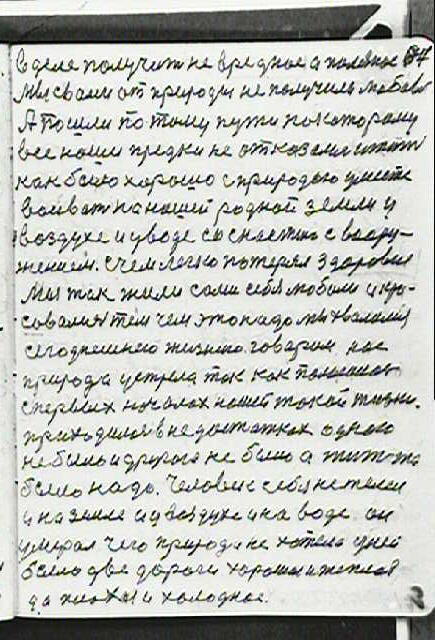 в деле получит не вредное а полезное 57
Мы с вами от природы не получили любови
А пошли по тому пути по которому
все наши предки не отказались итти
как было хорошо с природою умести
воивать на нашей родной земли у
воздухе и у воде со снастию с воору-
жением. с чем легко потерял здоровия
Мы так жили сами себя любили и кра-
совались тем чем это надо мы хвалились
сегоднешнею жизнию. говорим нас
природа устрела так как
с первых началах нашей такой жизни.
приходилося в недостатках одного
не было и другого не было а жит то
было надо. Человек себя
и на земле и у воздухе и на воде. он
умерал чего природа не хотела у ней
было две дороги хорошая и теплая
да плохая и холодное.